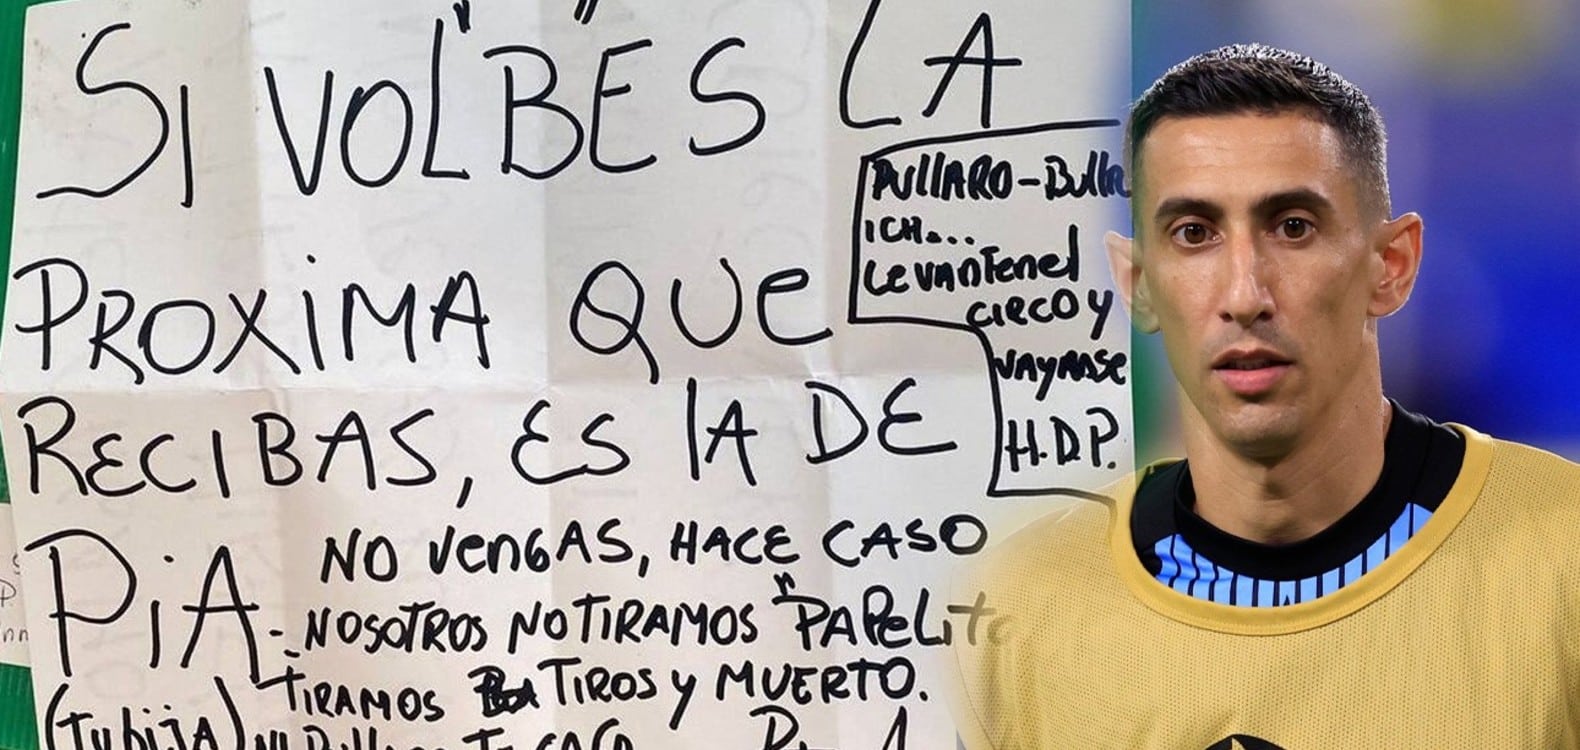 SI VOL"B"ES LA
PROXIMA QUE
RECIBAS, ES LA DE
PIA-
PUllARO-Bullr
ICH...
LevanTenel
circo y
VAYANSE
H.D.P.
NO VengAS, HACE CASO
- NOSOTROS NO TIRAMOS "PAPeLito
TIRAMOS TIROS y MUERTO.
(Tu hija)